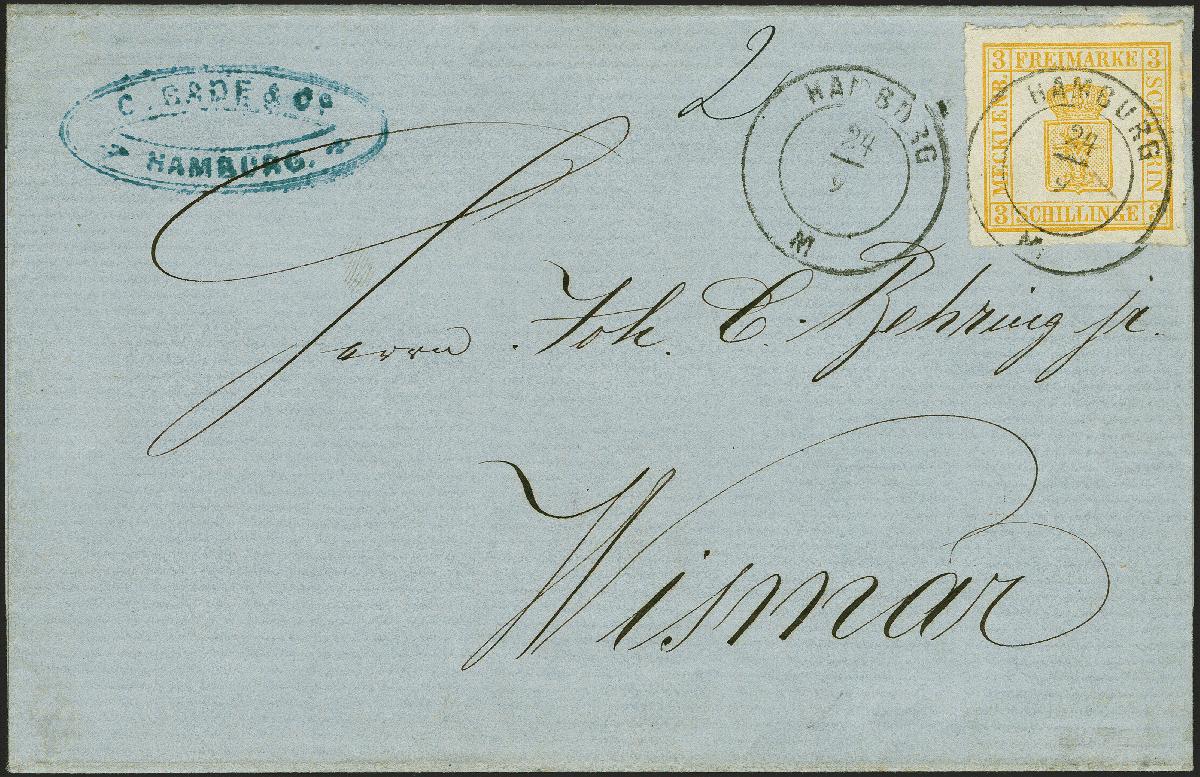 C. BADE & Co
HAMBURG.
2
HAMBURG
24
9
M
3 FREIMARKE 3
MECKLENB.
SCHWERIN
3 SCHILLINGE 3
HAMBURG
24
9
M
Herrn Joh. C. Behring jr.
Wismar